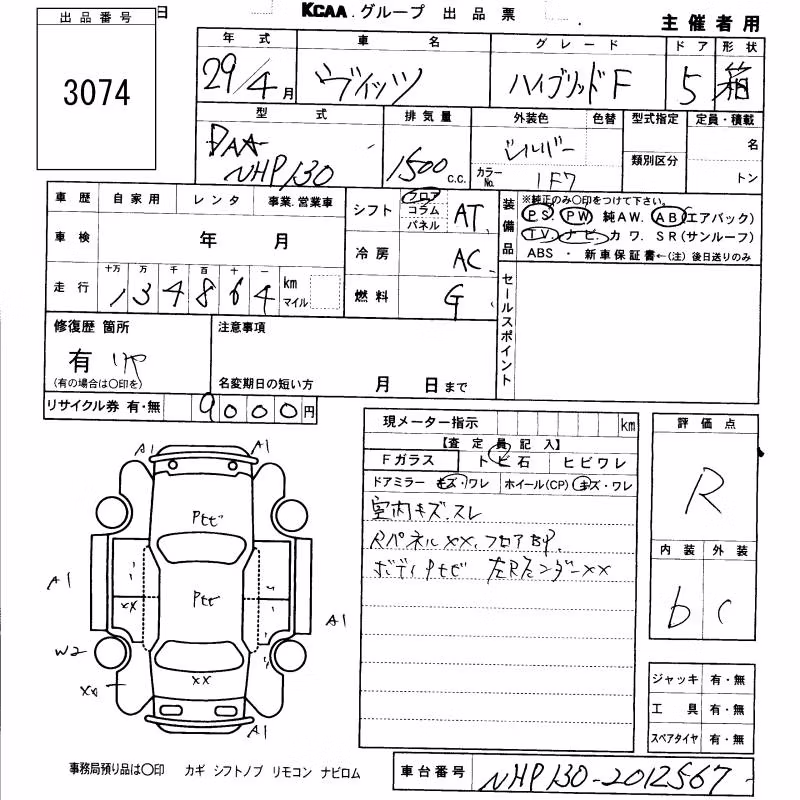 日 KCAA グループ 出品票
出品番号
3074
主催者用
年式 車名 グレード ドア 形状
29/4月 ヴィッツ ハイブリッドF 5 箱
型式 排気量 外装色 色替 型式指定 定員・積載
DAA-
NHP130 1500 c.c. シルバー
カラーNo. 1F7 類別区分 名
トン
車歴 自家用 レンタ 事業.営業車
車検 年 月
走行 十万 万 千 百 十 一
134864 km マイル
シフト フロア コラム パネル AT
冷房 AC
燃料 G
装備品 ※純正のみ○印をつけて下さい。
P.S. PW 純AW. AB(エアバック)
TV. ナビ. カワ. SR(サンルーフ)
ABS ・ 新車保証書←(注)後日送りのみ
セールスポイント
修復歴 箇所
有 リヤ
(有の場合は○印を)
注意事項
名変期日の短い方 月 日まで
リサイクル券 有・無 9000円
現メーター指示 km
【査定員記入】
Fガラス トビ石 ヒビワレ
ドアミラー キズ・ワレ ホイール(CP) キズ・ワレ
室内キズ.スレ
Rパネルxx.フロア
ボディPtセビ 左Rフェンダーxx
評価点
R
内装 外装
b C
A1 A1
Ptセ
A1 Ptセ
xx
A1
W2
xx xx
A1
ジャッキ 有・無
工具 有・無
スペアタイヤ 有・無
事務局預り品は○印 カギ シフトノブ リモコン ナビロム
車台番号 NHP130-2012567